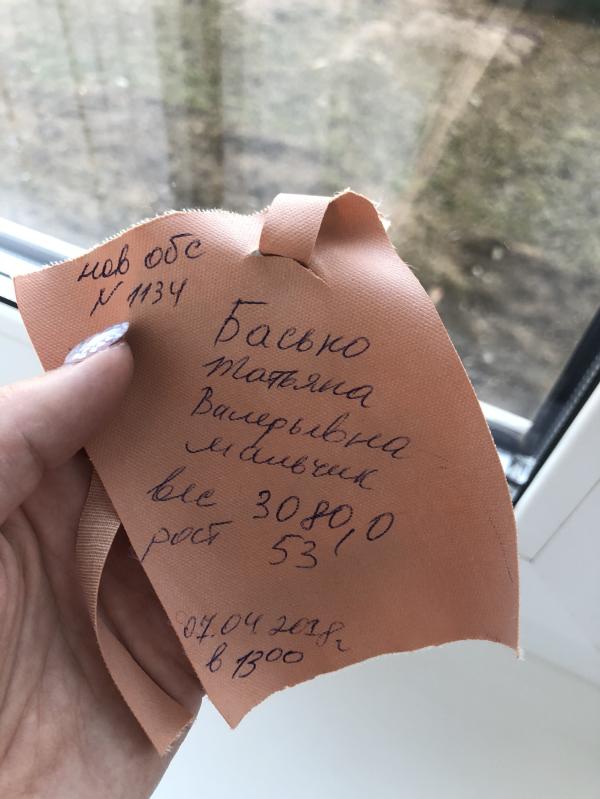 нов обс
N 1134
Басько
Татьяна
Валерьевна
мальчик
вес 3080,0
рост 53
07.04 2018г
в 13 00